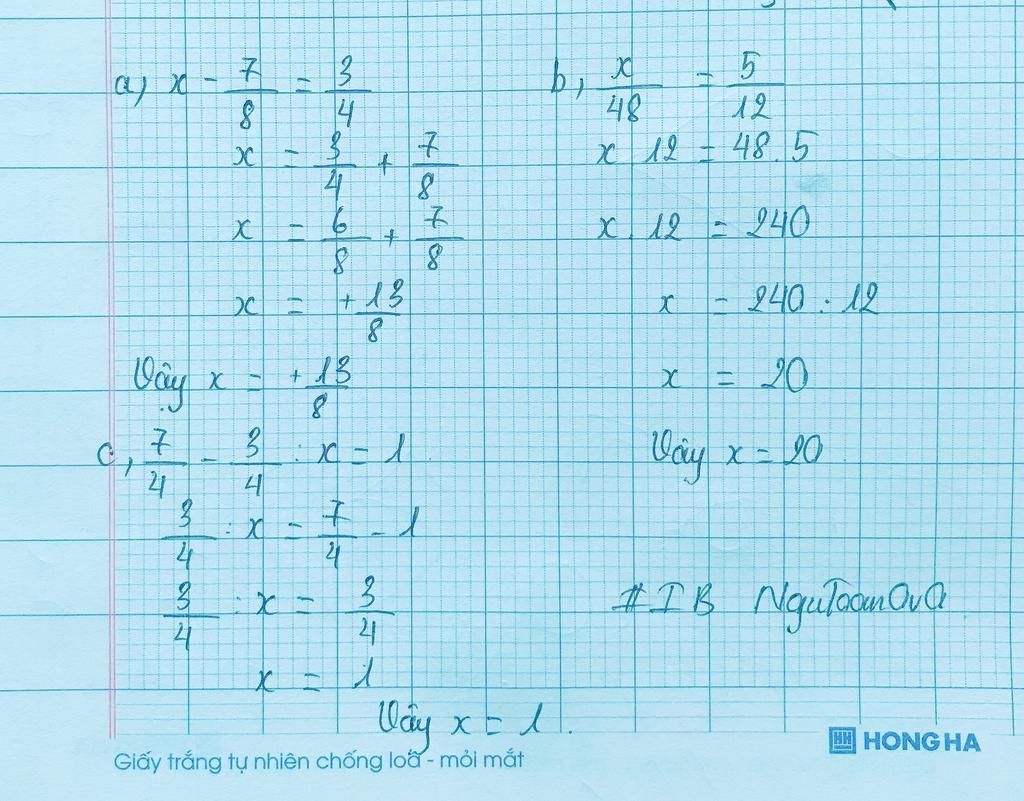 a, x - 7/8 = 3/4
x = 3/4 + 7/8
x = 6/8 + 7/8
x = +13/8
Vậy x = +13/8
b, x/48 = 5/12
x 12 = 48.5
x. 12 = 240
x = 240 : 12
x = 20
Vậy x = 20
c, 7/4 - 3/4 : x = 1
3/4 : x = 7/4 - 1
3/4 : x = 3/4
x = 1
Vậy x = 1.
#IB NguToanOvO
HH HONG HA
Giấy trắng tự nhiên chống loá - mỏi mắt